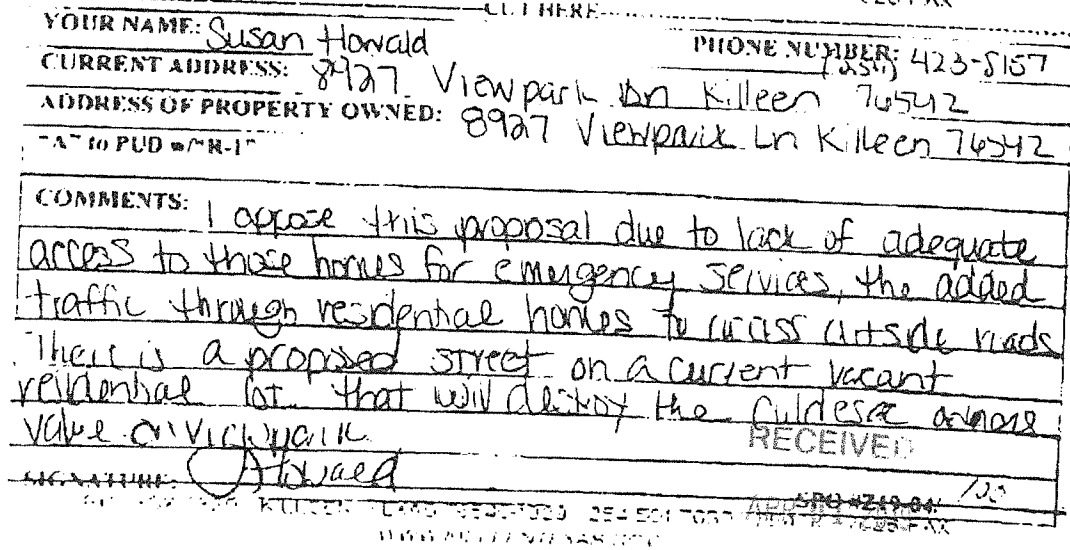 CUT HERE
YOUR NAME: Susan Howald PHONE NUMBER: (254) 423-5157
CURRENT ADDRESS: 8927 Viewpark Ln Killeen 76542
ADDRESS OF PROPERTY OWNED: 8927 Viewpark Ln Killeen 76542
"A" to PUD w/"R-1"
COMMENTS: I oppose this proposal due to lack of adequate
access to those homes for emergency services, the added
traffic through residential homes to access outside roads
There is a proposed street on a current vacant
residential lot that will destroy the culdesac
value on Viewpark.
RECEIVED
SIGNATURE: SHowald
SPO #Z19-04/
KILLEEN